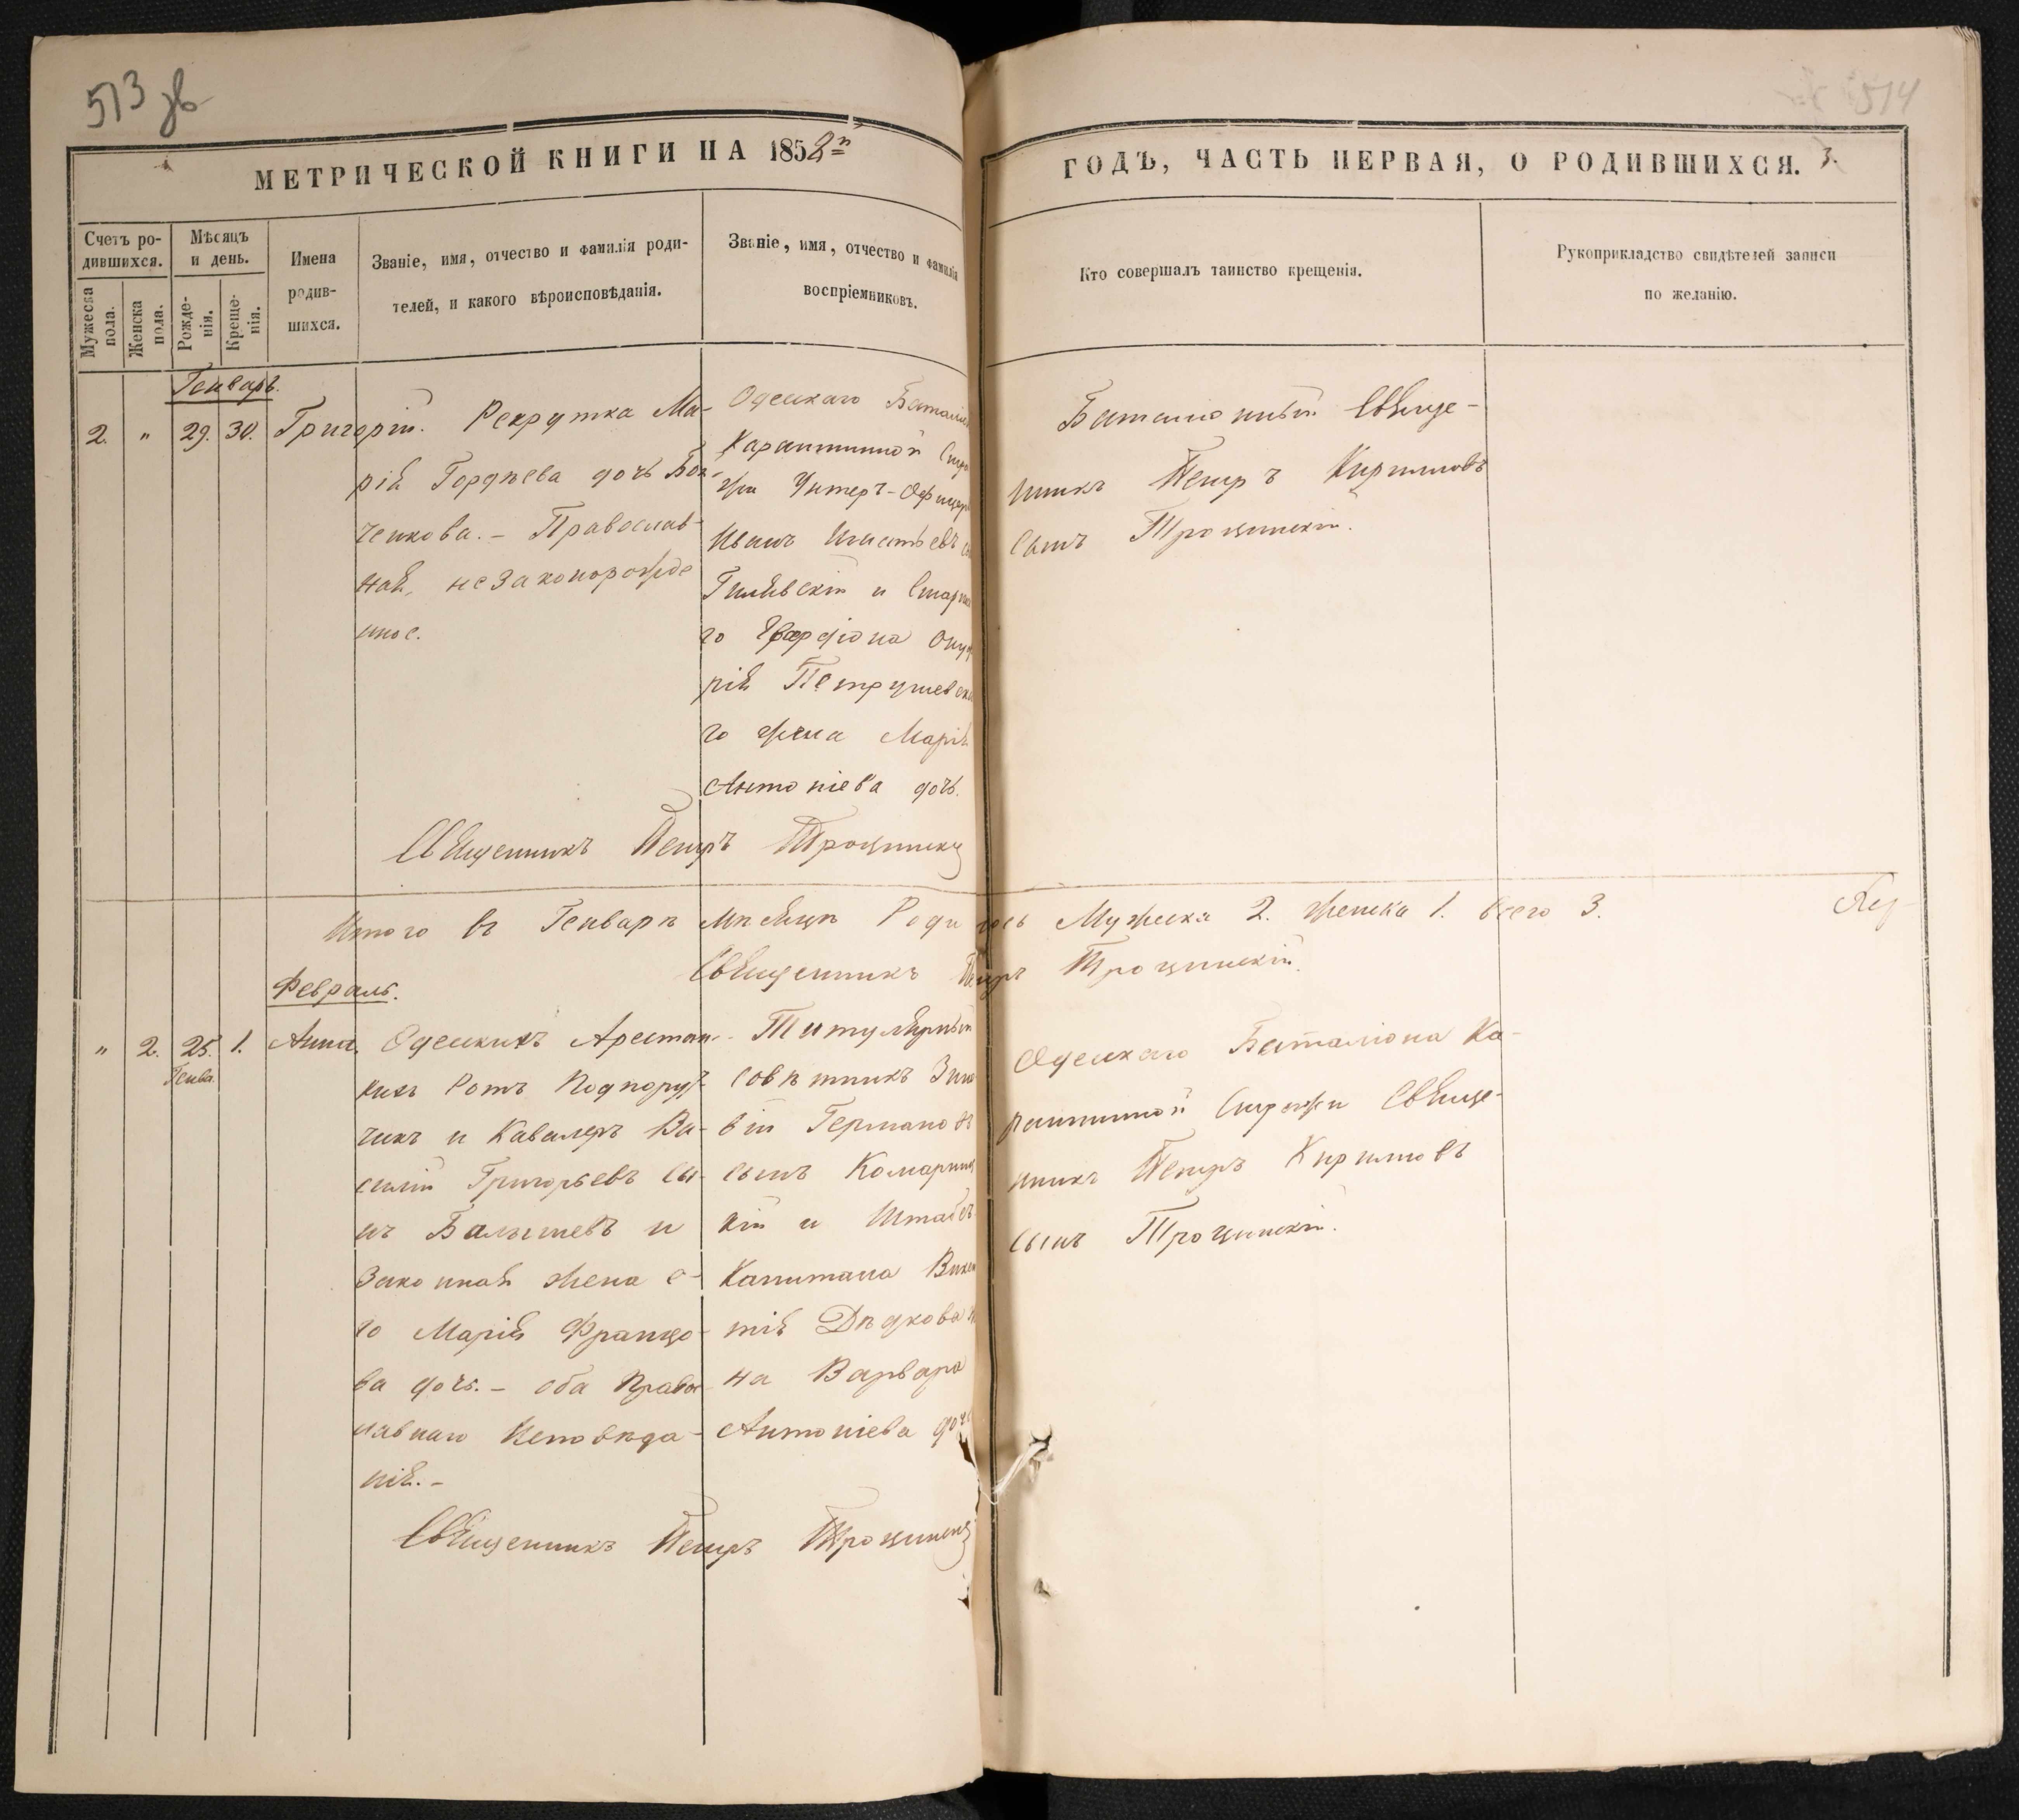 513 зв
514
МЕТРИЧЕСКОЙ КНИГИ НА 1852й
ГОДЪ, ЧАСТЬ ПЕРВАЯ, О РОДИВШИХСЯ. 3.
Счетъ ро-
дившихся.
Мужеска
пола.
Женска
пола.
Мѣсяцъ
и день.
Рожде-
нія.
Креще-
нія.
Имена
родив-
шихся.
Званіе, имя, отчество и фамилія роди-
телей, и какого вѣроисповѣданія.
Званіе, имя, отчество и фамилія
воспріемниковъ.
Кто совершалъ таинство крещенія.
Рукоприкладство свидѣтелей записи
по желанію.
Генварь.
2. " 29. 30. Григорій.
Рекрутка Ма-
рія Гордѣева дочь
ченкова. - Православ-
ная, незаконорожде
нное.
Одескаго Баталіо
Карантинной Стра
жи Унтеръ-Офицеръ
Иванъ Игнатьевъ
и Старша
го Гвардіона Онуф
рія Петрушевска
го жена Марія
Антоніева дочь.
Баталіонный Свяще-
нникъ Петръ Кирилловъ
сынъ Троцинскій.
Священникъ Петръ Троцинскій
Итого въ Генварѣ мѣсяцѣ Родилось Мужеска 2. Женска 1. всего 3.
Священникъ Петръ Троцинскій.
Февраль.
" 2. 25. 1. Анна.
Генва.
Одескихъ Арестан-
кихъ Ротъ Подпору-
чикъ и Кавалеръ Ва-
силій Григорьевъ сы-
нъ Балышевъ и
Законная жена е-
го Марія Францо-
ва дочь. - оба Право
славнаго Исповѣда-
нія. -
Титулярный
Совѣтникъ Зино
вій Германовъ
сынъ Комариц
кій и Штабсъ
Капитана Викен
тія Дѣдкова же
на Варвара
Антоніева дочь
Одескаго Баталіона Ка-
рантинной Стражи Свяще-
нникъ Петръ Кирилловъ
сынъ Троцинскій.
Священникъ Петръ Троцинскій